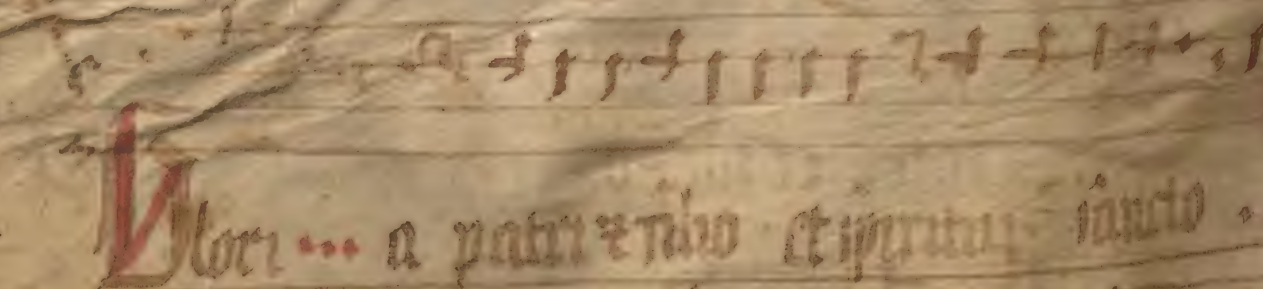 Glori a patri ⁊ filio et spiritui sancto .